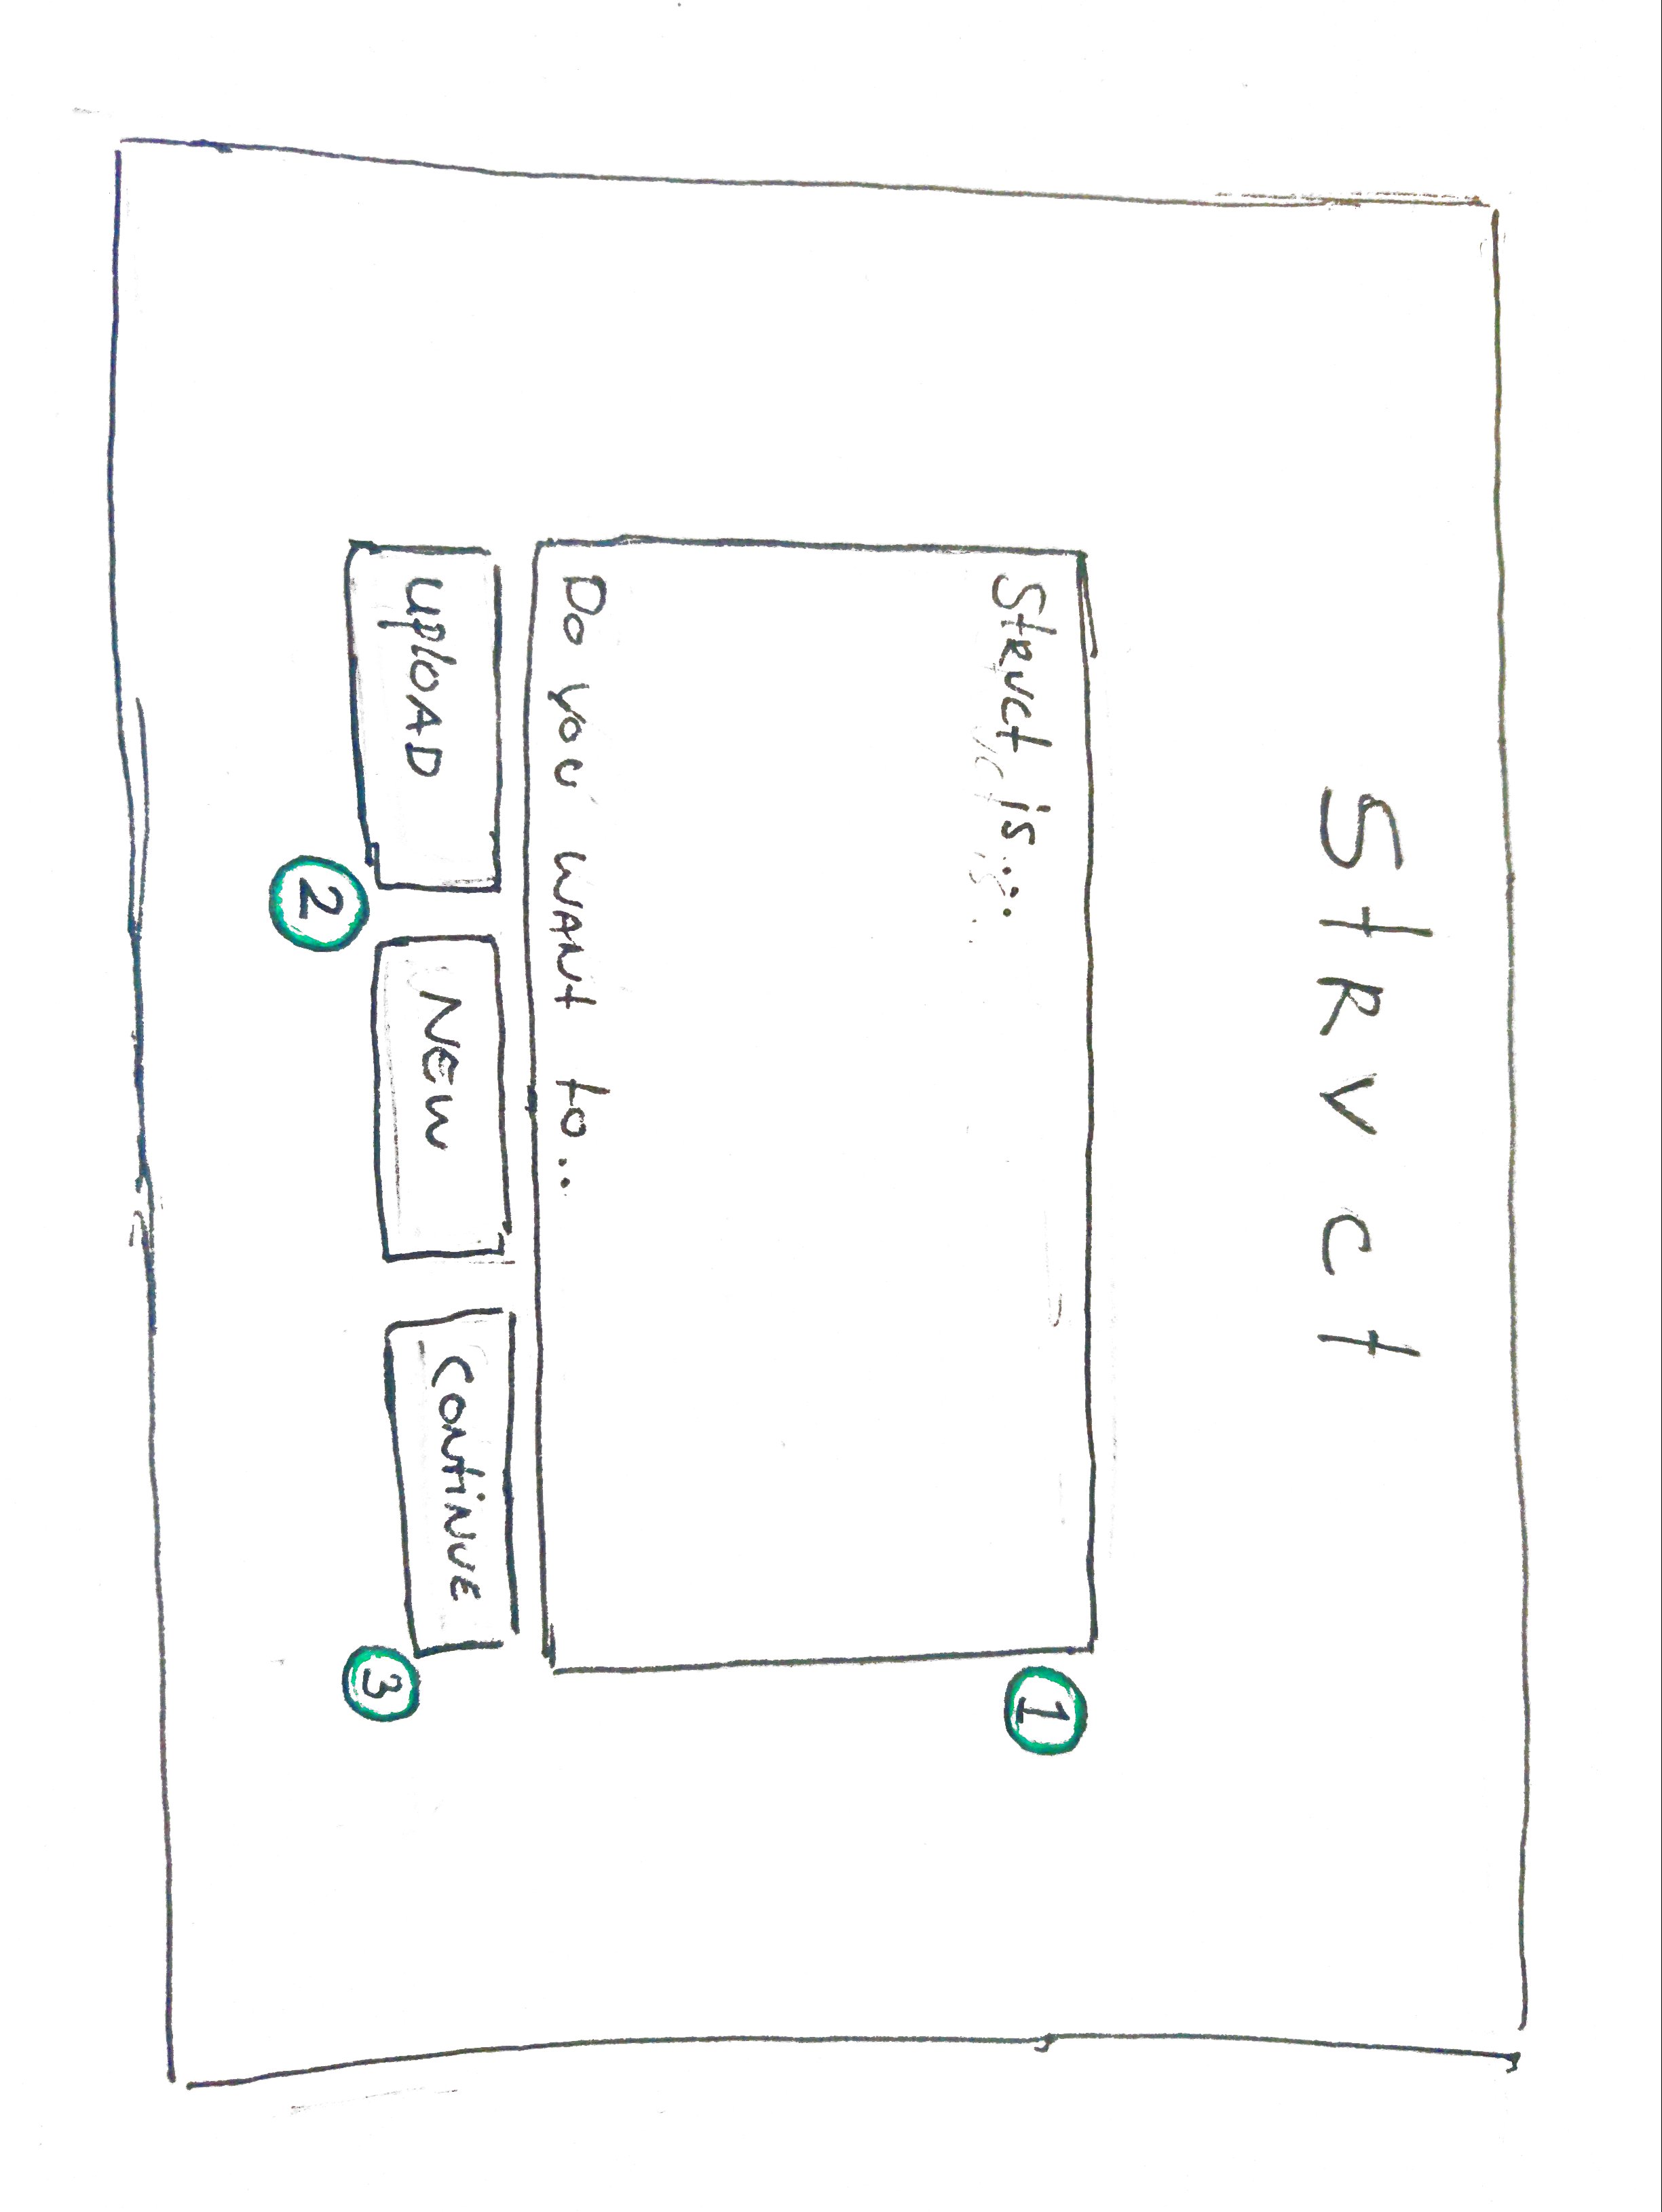 Struct
Struct is...
1
Do you want to..
Upload
New
Continue
2
3